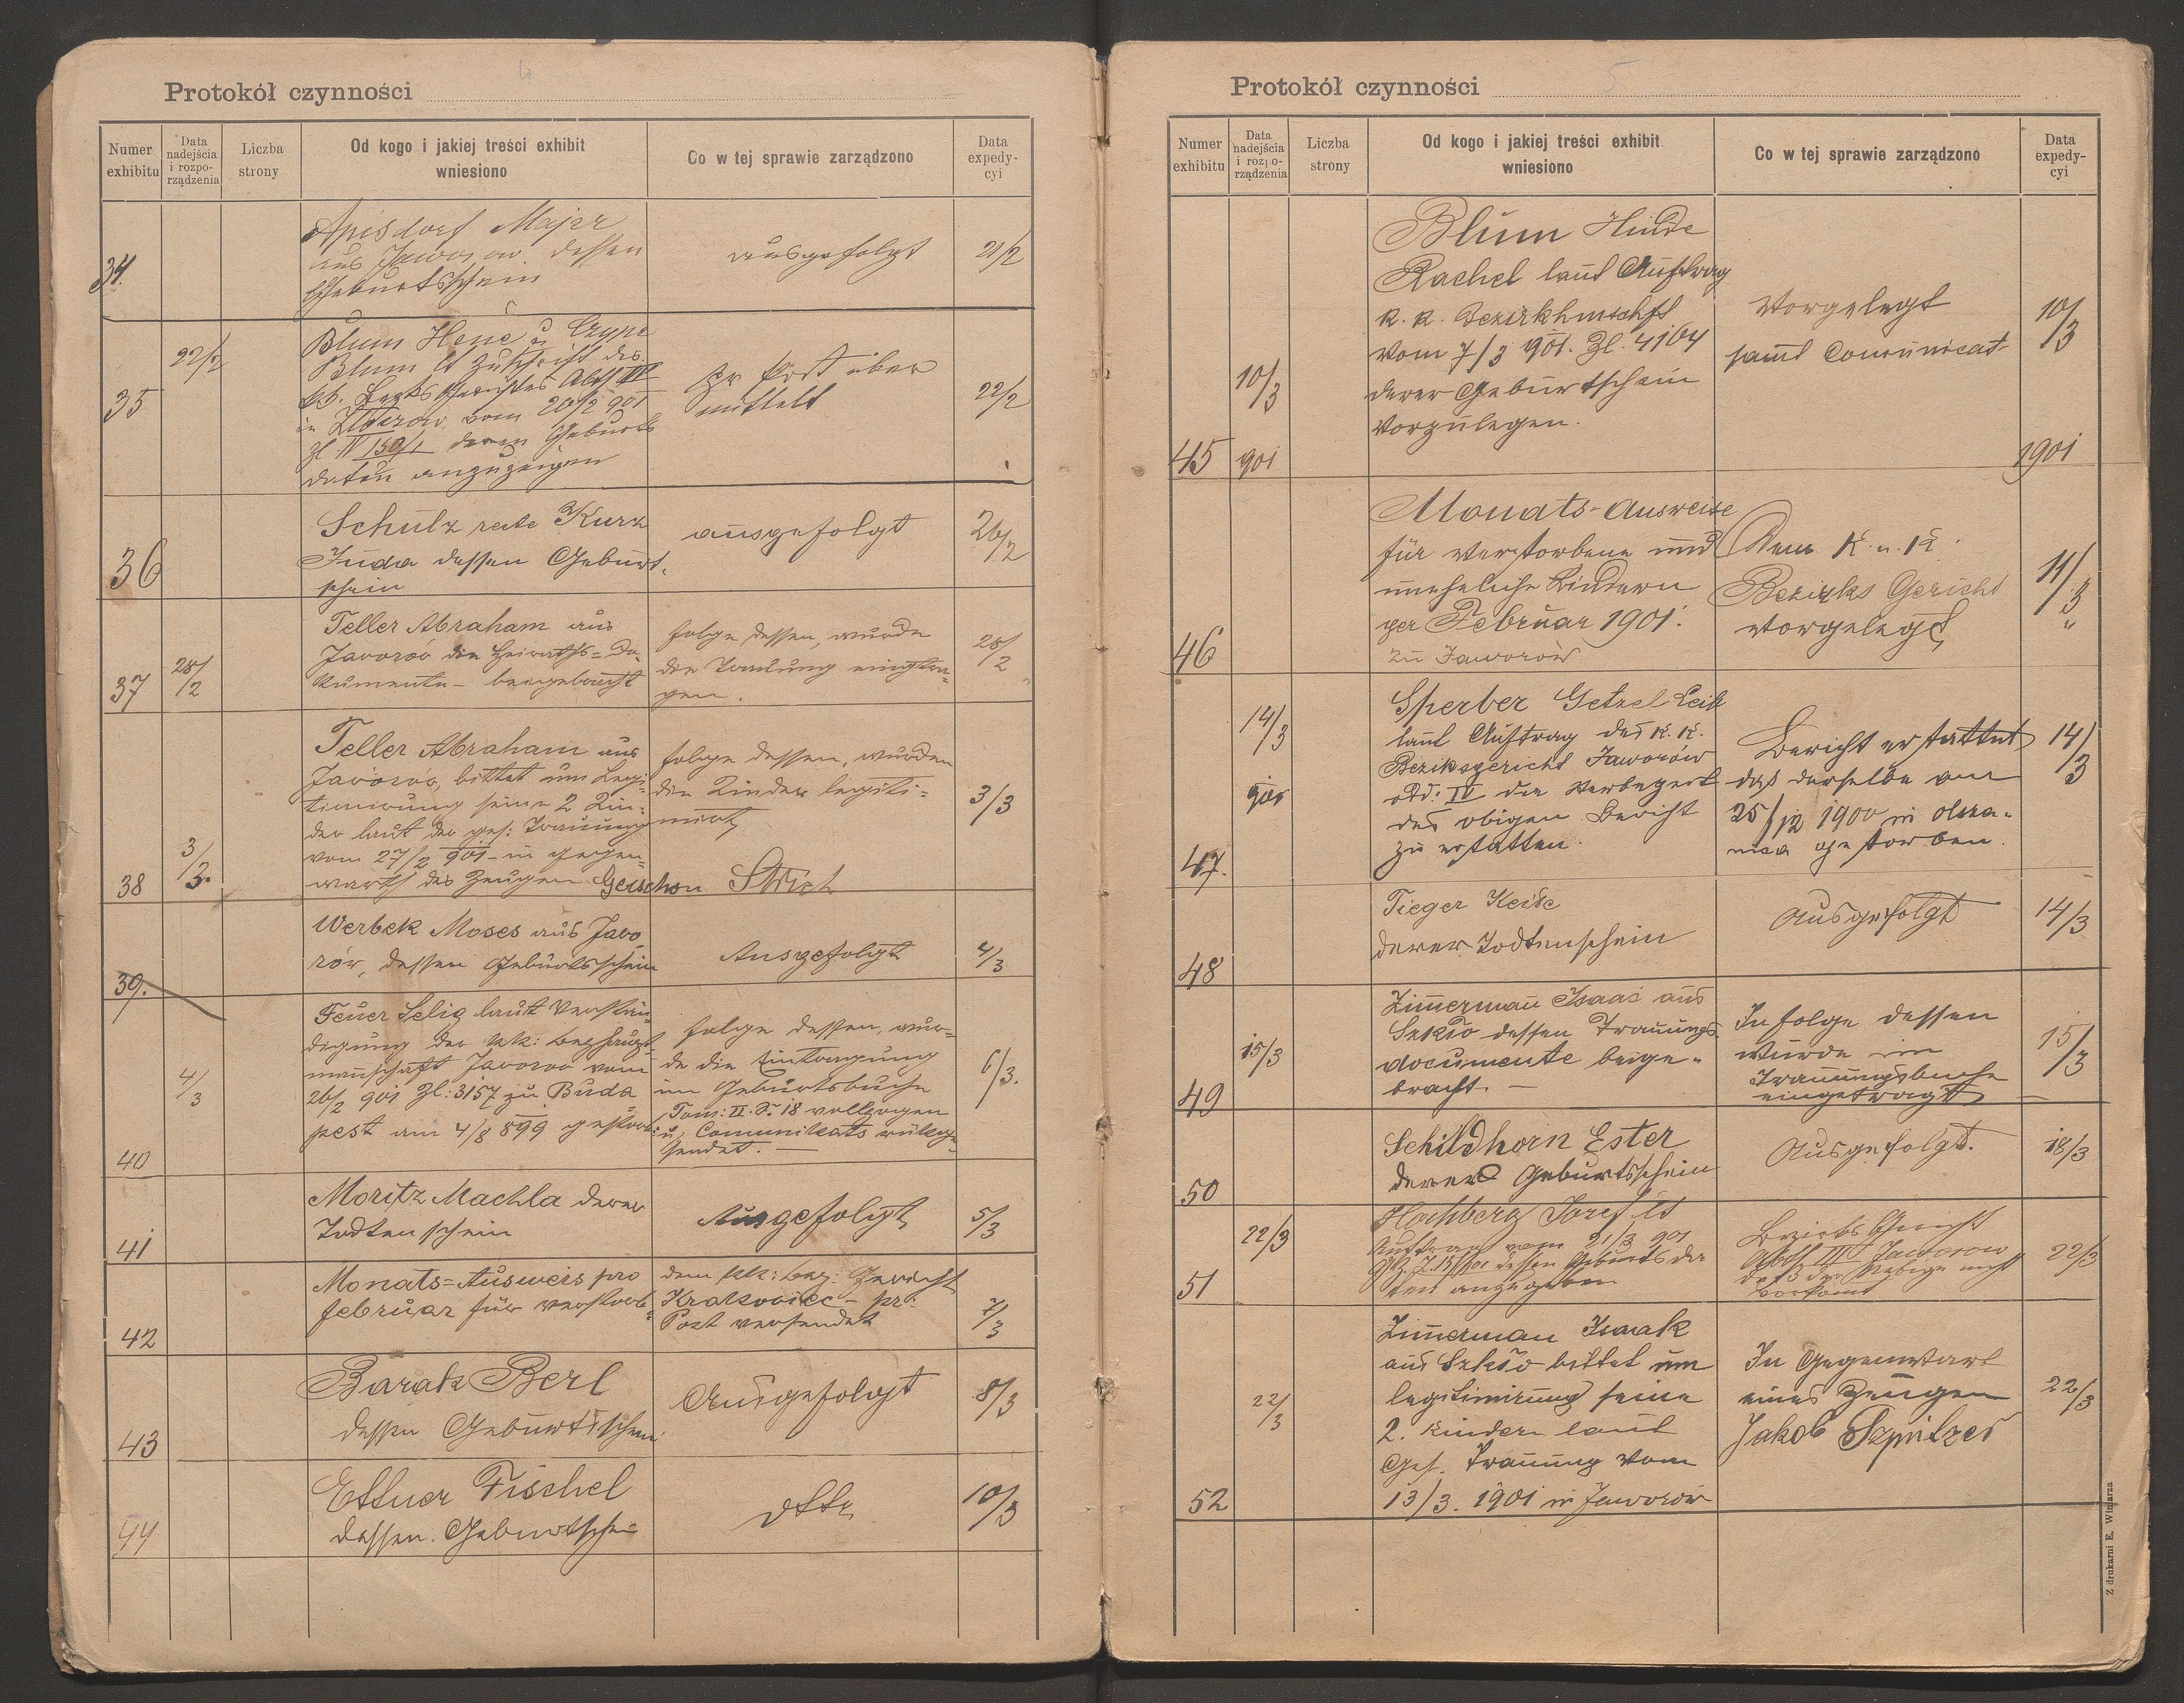 4
Protokół czynności
Numer exhibitu
Data nadejścia i rozporządzenia
Liczba strony
Od kogo i jakiej treści exhibit wniesiono
Co w tej sprawie zarządzono
Data expedycyi
34.
Apisdorf Majer
aus Jaworow dessen
Geburtsschein
ausgefolgt
21/2
35
22/2
Blum Hene u
Blum lt Zuschrift des
Gerichtes Abth IV
in vom 20/2 901
Zl. IV 150/1 deren Geburts
datum anzuzeigen
pr Post über
mittelt
22/2
36
Schulz recte Kurz
Juda dessen Geburt-
schein
ausgefolgt
26/2
37
28/2
Teller Abraham aus
Javorov die Heiraths=Do-
kumente beigebracht
folge dessen, wurde
die Trauung eingetra-
gen.
28/2
38
3/3.
Teller Abraham aus
Javorov, bittet um Legi-
timirung seine 2 Kin-
der laut der ges: Trauung
vom 27/2 901 in gegen-
warth des Zeugen Gerschon
folge dessen, wurden
die Kinder legiti=
mirt
3/3
39.
Werbek Moses aus Javo
rów, dessen Geburtsschein
Ausgefolgt
4/3
40
4/3
Feuer Selig laut Verstän-
digung der kk: Bezhaupt-
manschaft Javorov vom
26/2 901 Zl: 3157 zu Buda
pest am 4/8 899 gestorb:
folge dessen, wur-
de die Eintragung
im Geburtsbuche
Tom: II. S: 18 vollzogen
u: Comunikats rükge-
sendet. —
6/3.
41
Moritz Machla derer
Todtenschein
Ausgefolgt
5/3
42
Monats=Ausweis pro
februar für verstorb:
dem kk: bez: Gericht
Krakoviec pr:
Post versendet
7/3
43
Barak Berl
dessen Geburtsschein
Ausgefolgt
8/3
44
Ettner Fischel
dessen Geburtschein
dtto
10/3
5
Protokół czynności
Numer exhibitu
Data nadejścia i rozporządzenia
Liczba strony
Od kogo i jakiej treści exhibit wniesiono
Co w tej sprawie zarządzono
Data expedycyi
45
10/3
901
Blum Hinde
Rachel laut Auftrag
k. k. Bezirkhmschft
vom 7/3 901. Zl. 4104
derer Geburtschein
vorzulegen.
Vorgelegt
samt Comunicat
10/3
1901
46
Monats-Ausweise
für verstorbene und
uneheliche Kindern
per Februar 1901.
zu Jaworów
Dem K. u. K.
Bezirks Gericht
vorgelegt
11/3
"
47.
14/3
901
Sperber Getzel Leib
laut Auftrag des k. k.
Bezirksgericht Jaworów
Abt: IV
des obigen Bericht
zu erstatten.
Bericht erstattet
dass derselbe am
25/12 1900 in
gestorben.
14/3
48
Tieger Keile
derer Todtenschein
Ausgefolgt
14/3
49
15/3
Zimerman Isaac aus
Szkło dessen Trauungs
documente beige-
bracht. —
In folge dessen
wurde im
Trauungsbuche
eingetragt
15/3
50
Schildhorn Ester
derer Geburtsschein
Ausgefolgt.
18/3
51
22/3
Hochberg Josef lt
Auftrag vom 21/3 901
dessen Geburts da
ten anzugeben
Bezirks Gericht
Abth III Jaworow
22/3
52
22/3
Zimerman Isaak
aus Szkło bittet um
legitimirung seine
2. Kindern laut
Ges. Trauung vom
13/3. 1901 in Jaworów
In Gegenwart
eines Zeugen
Jakob Szpitzer
22/3
Z drukarni E. Winiarza